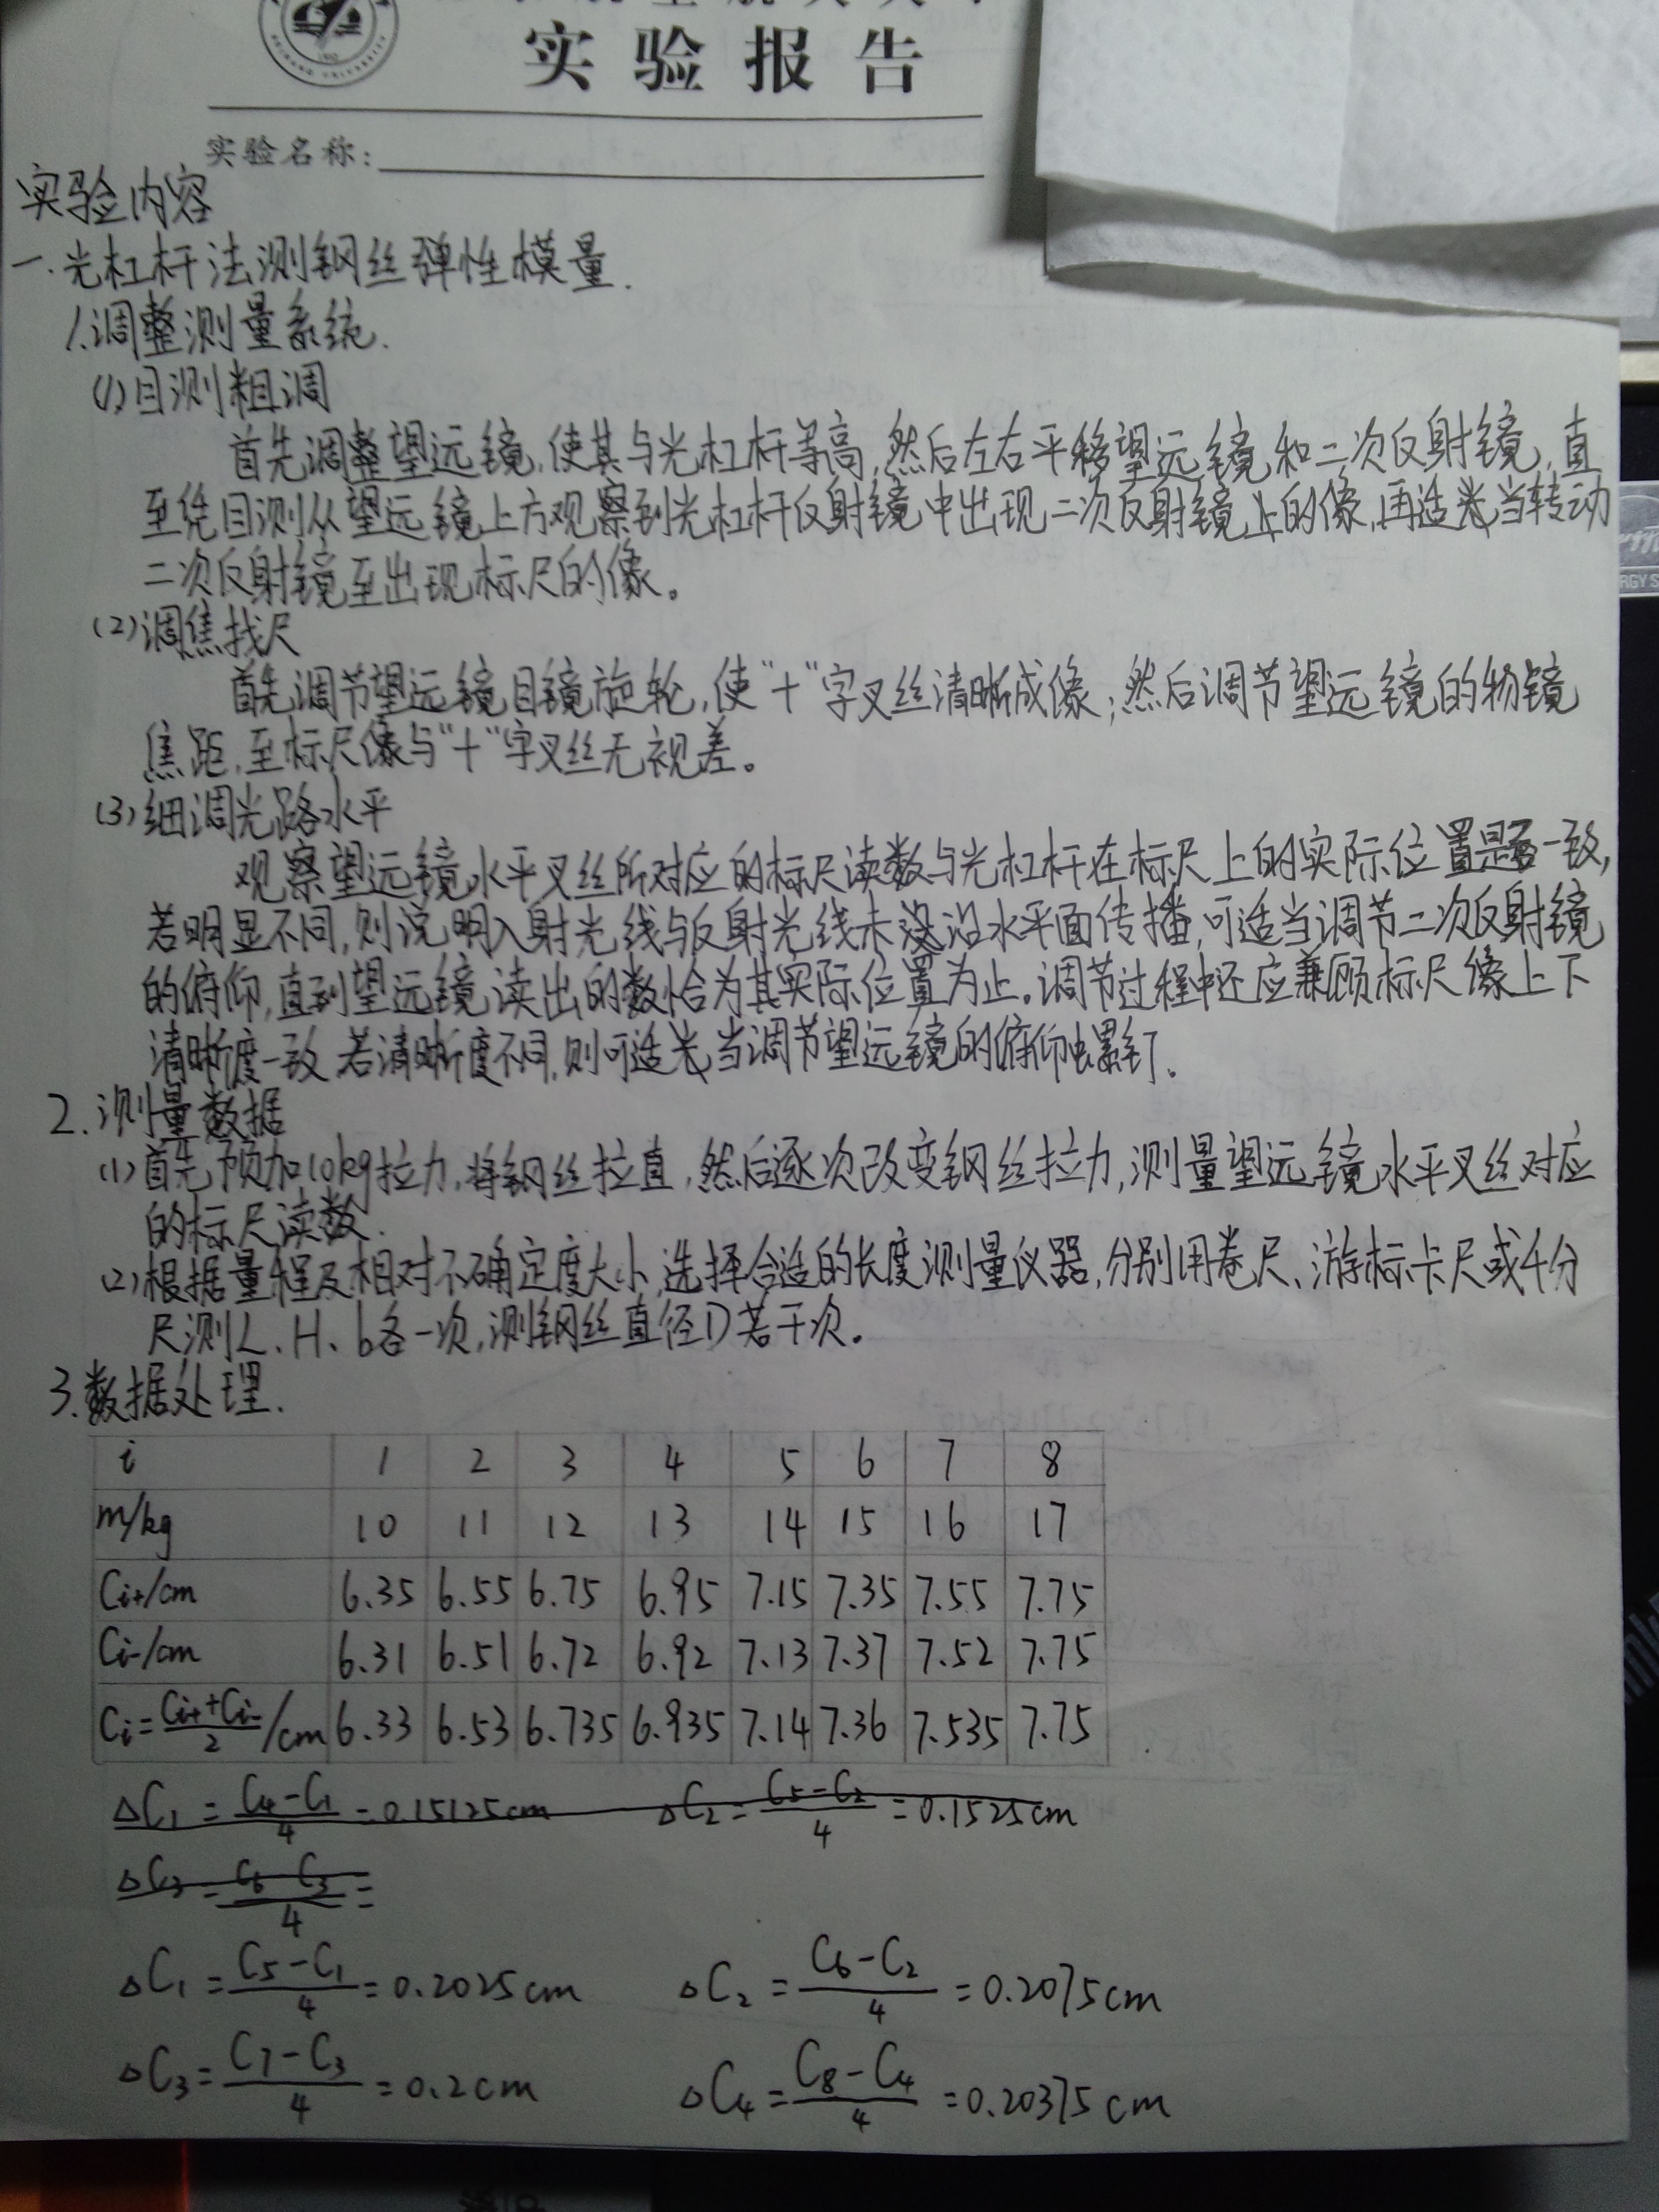 实验报告
实验名称:
实验内容
一.光杠杆法测钢丝弹性模量.
1.调整测量系统.
(1)目测粗调
首先调整望远镜,使其与光杠杆等高,然后左右平移望远镜和二次反射镜,直
至凭目测从望远镜上方观察到光杠杆反射镜中出现二次反射镜上的像,再适当转动
二次反射镜至出现标尺的像。
(2)调焦找尺
首先调节望远镜目镜旋轮,使"十"字叉丝清晰成像;然后调节望远镜的物镜
焦距,至标尺像与"十"字叉丝无视差。
(3)细调光路水平
观察望远镜水平叉丝所对应的标尺读数与光杠杆在标尺上的实际位置是否一致,
若明显不同,则说明入射光线与反射光线未沿水平面传播,可适当调节二次反射镜
的俯仰,直到望远镜读出的数恰为其实际位置为止。调节过程中还应兼顾标尺像上下
清晰度一致,若清晰度不同,则可适当调节望远镜的俯仰螺钉。
2.测量数据
(1)首先预加10kg拉力,将钢丝拉直,然后逐次改变钢丝拉力,测量望远镜水平叉丝对应
的标尺读数.
(2)根据量程及相对不确定度大小,选择合适的长度测量仪器,分别用卷尺、游标卡尺或千分
尺测L、H、b各一次,测钢丝直径D若干次。
3.数据处理.
i 1 2 3 4 5 6 7 8
m/kg 10 11 12 13 14 15 16 17
Ci+/cm 6.35 6.55 6.75 6.95 7.15 7.35 7.55 7.75
Ci-/cm 6.31 6.51 6.72 6.92 7.13 7.37 7.52 7.75
Ci=(Ci++Ci-)/2 /cm 6.33 6.53 6.735 6.935 7.14 7.36 7.535 7.75
ΔC₁=(C₄-C₁)/4=0.15125cm ΔC₂=(C₅-C₂)/4=0.1525cm
ΔC₃=(C₆-C₃)/4=
ΔC₁=(C₅-C₁)/4=0.2025cm ΔC₂=(C₆-C₂)/4=0.2075cm
ΔC₃=(C₇-C₃)/4=0.2cm ΔC₄=(C₈-C₄)/4=0.20375cm